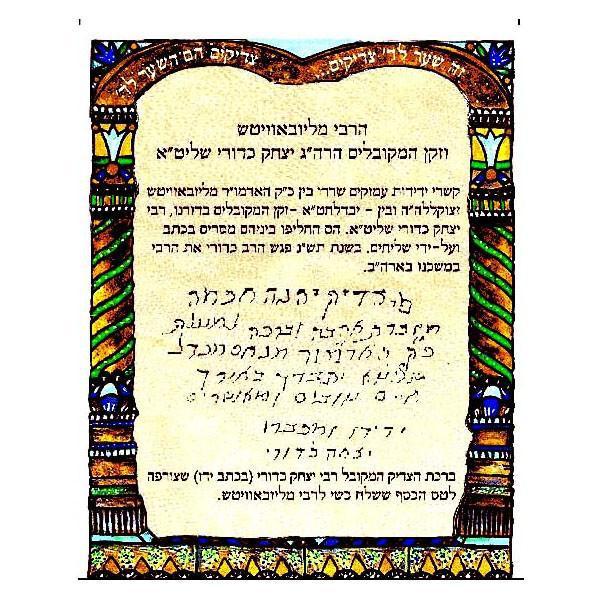 זה שער לה׳ צדיקים...
צדיקים הם השער לה׳
הרבי מליובאוויטש
וזקן המקובלים הרה״ג יצחק כדורי שליט״א
קשרי ידידות עמוקים שררו בין כ״ק האדמו״ר מליובאוויטש
יצוקללה״ה ובין - יבדלחט״א -זקן המקובלים בדורנו, רבי
יצחק כדורי שליט״א. הם החליפו ביניהם מסרים בכתב
ועל-ידי שליחים. בשנת תש״נ פגש הרב כדורי את הרבי
במשכנו בארה״ב.
יהגה חכמה
וברכה
כק האדמור מנחם מענדל
שליטא יתברך באורך
ימים טובים ומאושרים
ידידו ומכבדו
יצחק כדורי
ברכת הצדיק המקובל רבי יצחק כדורי (בכתב ידו) שצורפה
לטס הכסף ששלח כשי לרבי מליובאוויטש.